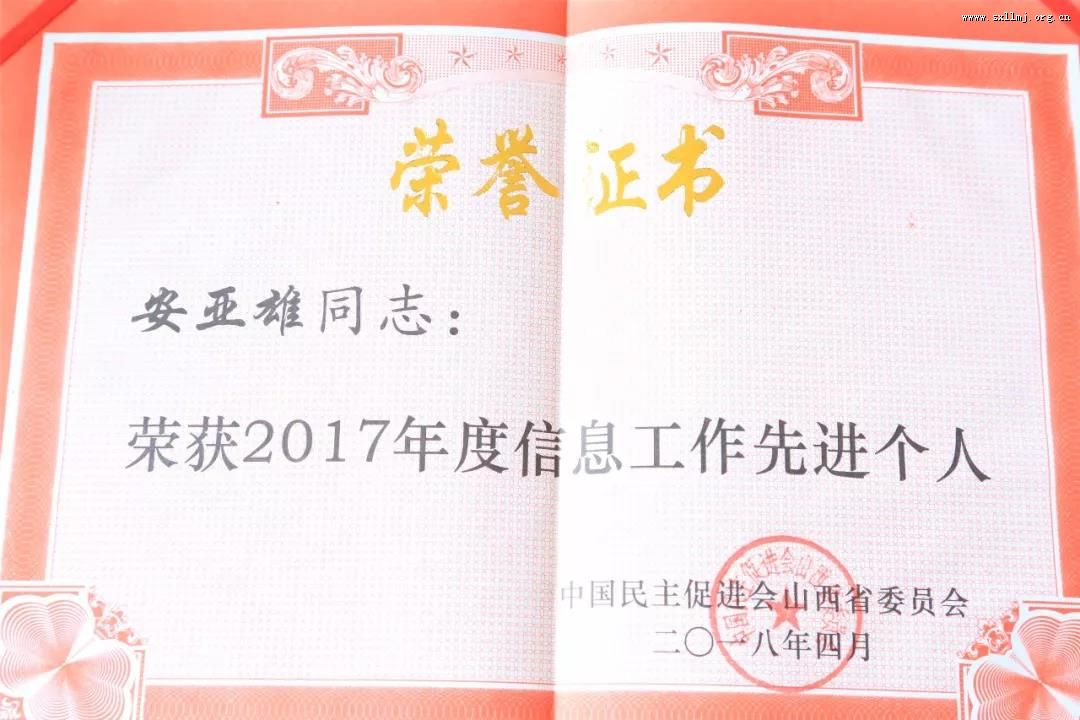 www.sxllmj.org.cn
荣誉证书
安亚雄同志：
荣获2017年度信息工作先进个人
中国民主促进会山西省委员会
二〇一八年四月